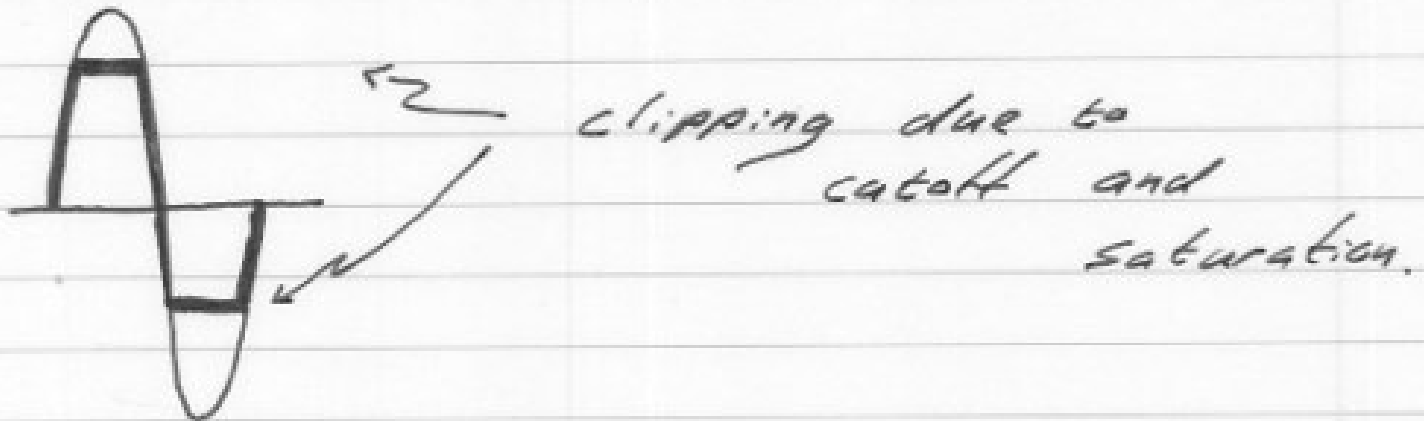 clipping due to
cutoff and
saturation.